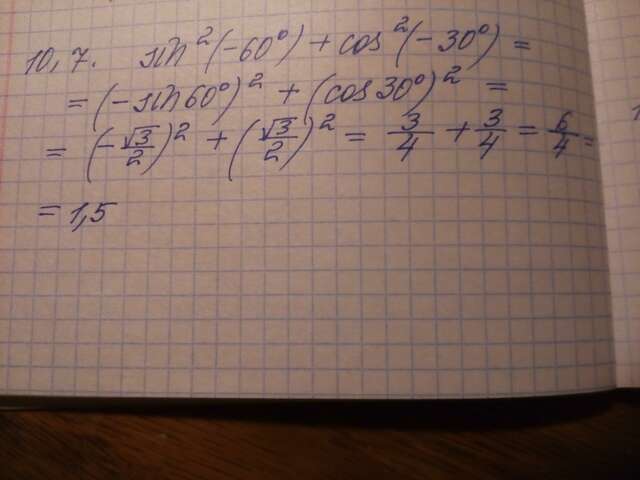 10,7. sin²(-60°) + cos²(-30°) =
= (-sin60°)² + (cos30°)² =
= (-√3/2)² + (√3/2)² = 3/4 + 3/4 = 6/4 =
= 1,5